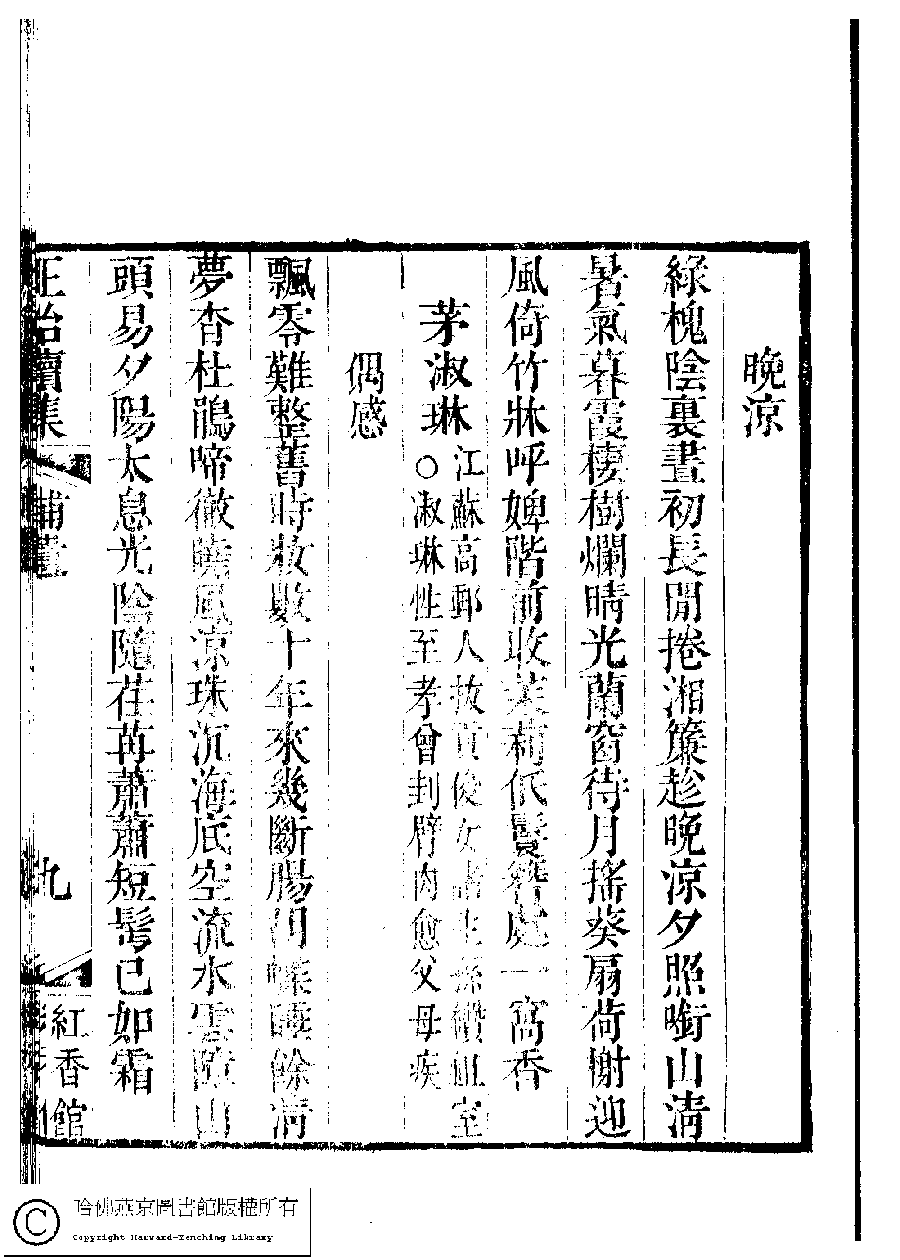 晚涼
綠槐陰裏晝初長閒捲湘簾趁晚涼夕照銜山淸
暑氣暮霞棲樹爛晴光蘭窗待月搖葵扇荷榭迎
風倚竹牀呼婢階前收茉莉低鬟簪處一窩香
茅淑琳
江蘇高郵人拔貢俊女諸生孫纘祖室
○淑琳性至孝曾刲臂肉愈父母疾
偶感
飄零難整舊時妝數十年來幾斷腸蝶睡餘淸
夢杳杜鵑啼徹曉風涼珠沉海底空流水雲障山
頭易夕陽太息光陰隨荏苒蕭蕭短髩已如霜
正始續集
補遺
九
紅香館
哈佛燕京圖書館版權所有
Copyright Harvard-Yenching Library